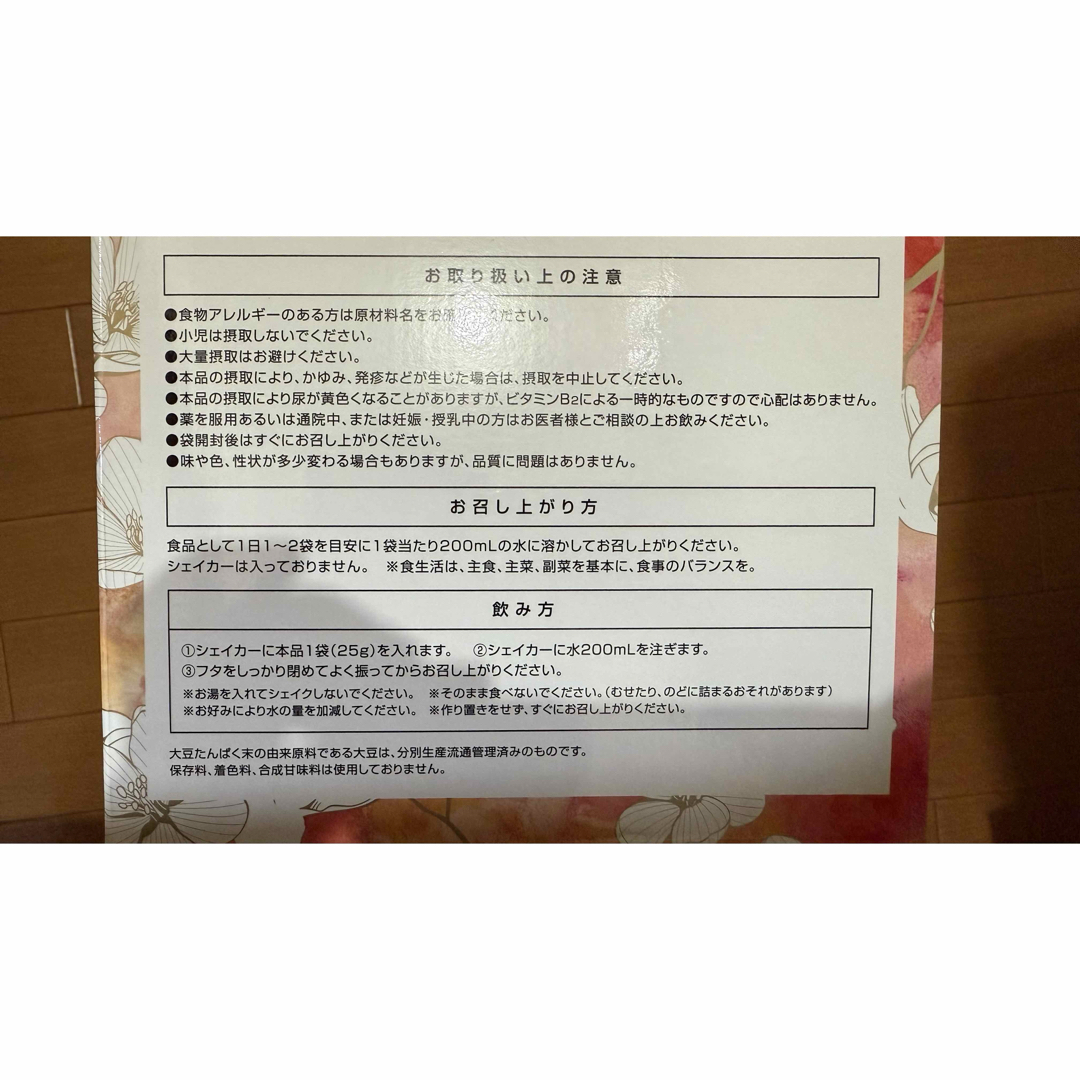 お取り扱い上の注意
●食物アレルギーのある方は原材料名をお ください。
●小児は摂取しないでください。
●大量摂取はお避けください。
●本品の摂取により、かゆみ、発疹などが生じた場合は、摂取を中止してください。
●本品の摂取により尿が黄色くなることがありますが、ビタミンB2による一時的なものですので心配はありません。
●薬を服用あるいは通院中、または妊娠・授乳中の方はお医者様とご相談の上お飲みください。
●袋開封後はすぐにお召し上がりください。
●味や色、性状が多少変わる場合もありますが、品質に問題はありません。
お召し上がり方
食品として1日1～2袋を目安に1袋当たり200mLの水に溶かしてお召し上がりください。
シェイカーは入っておりません。 ※食生活は、主食、主菜、副菜を基本に、食事のバランスを。
飲み方
①シェイカーに本品1袋(25g)を入れます。 ②シェイカーに水200mLを注ぎます。
③フタをしっかり閉めてよく振ってからお召し上がりください。
※お湯を入れてシェイクしないでください。 ※そのまま食べないでください。(むせたり、のどに詰まるおそれがあります)
※お好みにより水の量を加減してください。 ※作り置きをせず、すぐにお召し上がりください。
大豆たんぱく末の由来原料である大豆は、分別生産流通管理済みのものです。
保存料、着色料、合成甘味料は使用しておりません。